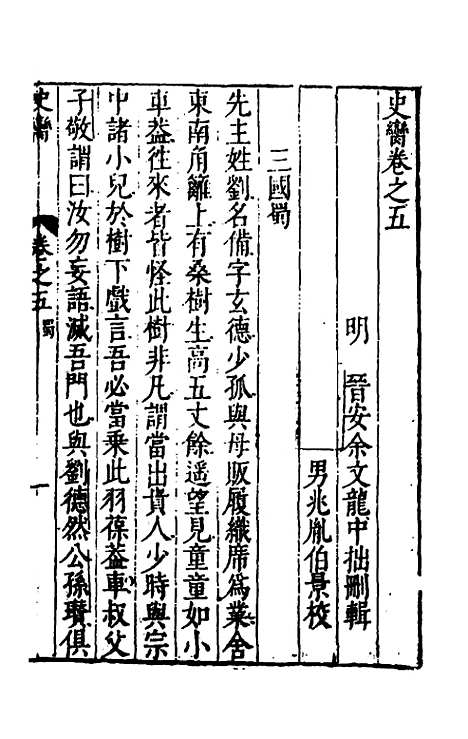 史臠卷之五
明 晉安余文龍中拙刪輯
男兆胤伯景校
三國蜀
先主姓劉名備字玄德少孤與母販履織席為業舍
東南角籬上有桑樹生高五丈餘遥望見童童如小
車葢徃來者皆怪此樹非凡謂當出貴人少時與宗
中諸小兒於樹下戲言吾必當乘此羽葆葢車叔父
子敬謂曰汝勿妄語滅吾門也與劉德然公孫瓚俱
史臠 卷之五 蜀 一